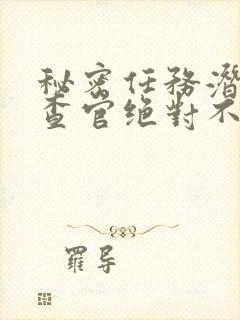 秘密任務潛
查官絶對不
羅导